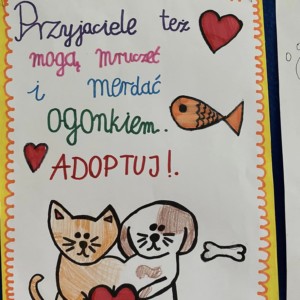 Przyjaciele też
mogą mruczeć
i merdać
ogonkiem.
ADOPTUJ!.